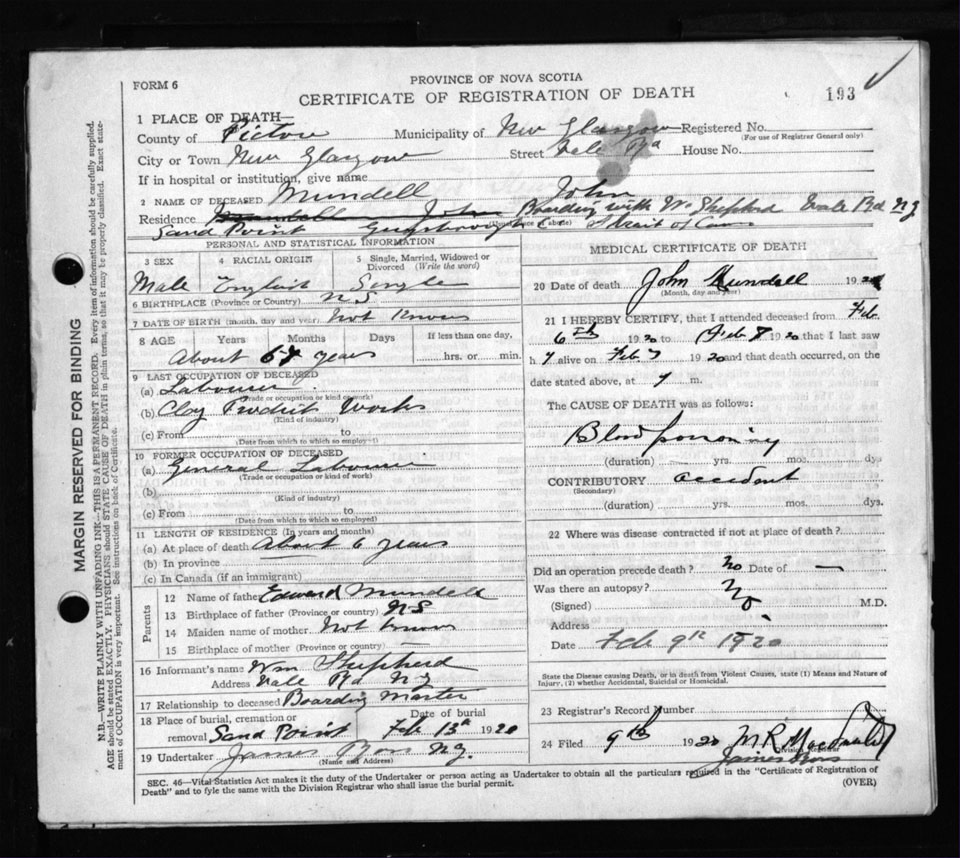 FORM 6
PROVINCE OF NOVA SCOTIA
CERTIFICATE OF REGISTRATION OF DEATH
193
1 PLACE OF DEATH—
County of Pictou Municipality of New Glasgow Registered No.
(For use of Registrar General only)
City or Town New Glasgow Street Vale Rd House No.
If in hospital or institution, give name
2 NAME OF DECEASED Mundell John
Residence Mundell John Boarding with Wm Shepherd Vale Rd N G
Sand Point Guysborough Co Strait of Canso
PERSONAL AND STATISTICAL INFORMATION
3 SEX 4 RACIAL ORIGIN 5 Single, Married, Widowed or Divorced (Write the word)
Male English Single
6 BIRTHPLACE (Province or Country) N S
7 DATE OF BIRTH (month, day and year) Not Known
8 AGE Years Months Days If less than one day,
About years hrs. or min.
9 LAST OCCUPATION OF DECEASED
(a) Labourer
(Trade or occupation or kind of work)
(b) Clay Product Works
(Kind of industry)
(c) From to
(Date from which to which so employed)
10 FORMER OCCUPATION OF DECEASED
(a) General Labourer
(Trade or occupation or kind of work)
(b)
(Kind of industry)
(c) From to
(Date from which to which so employed)
11 LENGTH OF RESIDENCE (In years and months)
(a) At place of death About 6 years
(b) In province
(c) In Canada (if an immigrant)
Parents
12 Name of father Edward Mundell
13 Birthplace of father (Province or country) N S
14 Maiden name of mother Not known
15 Birthplace of mother (Province or country)
16 Informant's name Wm Shepherd
Address Vale Rd N G
17 Relationship to deceased Boarding Master
18 Place of burial, cremation or removal Sand Point Date of burial Feb 13th 1920
19 Undertaker James N G.
(Name and Address)
MEDICAL CERTIFICATE OF DEATH
20 Date of death John Mundell 192
(Month, day and year)
21 I HEREBY CERTIFY, that I attended deceased from Feb
6th 1920 to Feb 8 1920 that I last saw
h alive on Feb 7 1920 and that death occurred, on the
date stated above, at 7 m.
The CAUSE OF DEATH was as follows:
Blood poisoning
(duration) yrs. mos. dys
CONTRIBUTORY accident
(Secondary)
(duration) yrs. mos. dys.
22 Where was disease contracted if not at place of death?
Did an operation precede death? No Date of —
Was there an autopsy? No
(Signed) M.D.
Address
Date Feb 9th 1920
State the Disease causing Death, or in death from Violent Causes, state (1) Means and Nature of Injury, (2) whether Accidental, Suicidal or Homicidal.
23 Registrar's Record Number
24 Filed 9th 1920 M R Macdonald
Division Registrar
SEC. 46—Vital Statistics Act makes it the duty of the Undertaker or person acting as Undertaker to obtain all the particulars required in the "Certificate of Registration of
Death" and to fyle the same with the Division Registrar who shall issue the burial permit. (OVER)
MARGIN RESERVED FOR BINDING
N.B.—WRITE PLAINLY WITH UNFADING INK—THIS IS A PERMANENT RECORD. Every item of information should be carefully supplied.
AGE should be stated EXACTLY. PHYSICIANS should STATE CAUSE OF DEATH in plain terms, so that it may be properly classified. Exact state-
ment of OCCUPATION is very important. See instructions on back of Certificate.